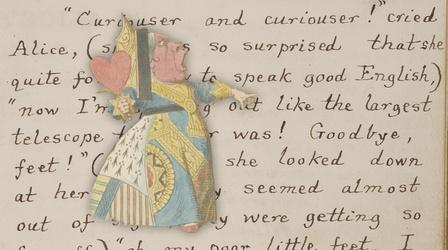 "Curiouser and curiouser!" cried
Alice, (s so surprised that she
quite fo to speak good English,)
"now I'm g out like the largest
telescope was! Goodbye,
feet!" ( she looked down
at her y seemed almost
out of y were getting so
my poor little feet, I